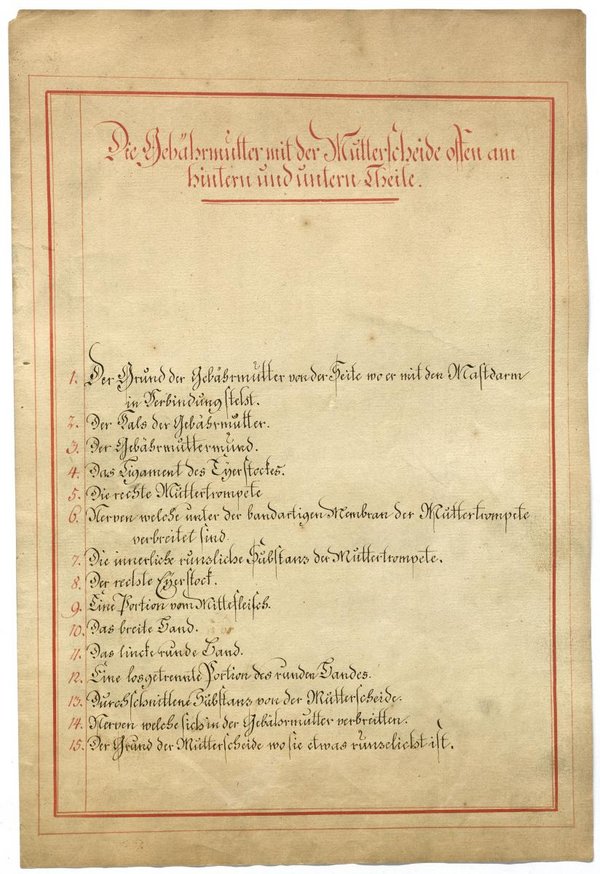 Die Gebährmutter mit der Mutterscheide offen am
hintern und untern Theile.
1. Der Grund der Gebährmutter von der Seite wo er mit den Mastdarm
in Verbindung steht.
2. Der Hals der Gebährmutter.
3. Der Gebährmuttermund.
4. Das Ligament des Eyerstockes.
5. Die rechte Muttertrompete
6. Nerven welche unter der bandartigen Membran der Muttertrompete
verbreitet sind
7. Die innerliche runsliche Substans der Muttertrompete.
8. Der rechte Eyerstock.
9. Eine Portion vom Mittefleisch.
10. Das breite Band.
11. Das lincke runde Band.
12. Eine losgetrennte Portion des runden Bandes.
13. Durchschnittene Substans von der Mutterscheide.
14. Nerven welche sich in der Gebährmutter verbreitten.
15. Der Grund der Mutterscheide wo sie etwas runselicht ist.